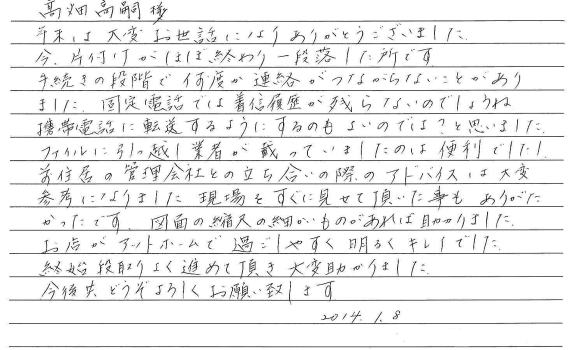 高畑高嗣様
年末は大変お世話になりありがとうございました。
今、片付けがほぼ終わり一段落した所です
手続きの段階で何度か連絡がつながらないことがあり
ました。固定電話では着信履歴が残らないのでしょうね
携帯電話に転送するようにするのもよいのでは?と思いました。
ファイルに引っ越し業者が載っていましたのは便利でした!
前住居の管理会社との立ち合いの際のアドバイスは大変
参考になりました 現場をすぐに見せて頂いた事もありがた
かったです。図面の縮尺の細かいものがあれば助かりました。
お店がアットホームで過ごしやすく明るくキレイでした。
終始段取りよく進めて頂き大変助かりました。
今後共、どうぞよろしくお願い致します
2014.1.8